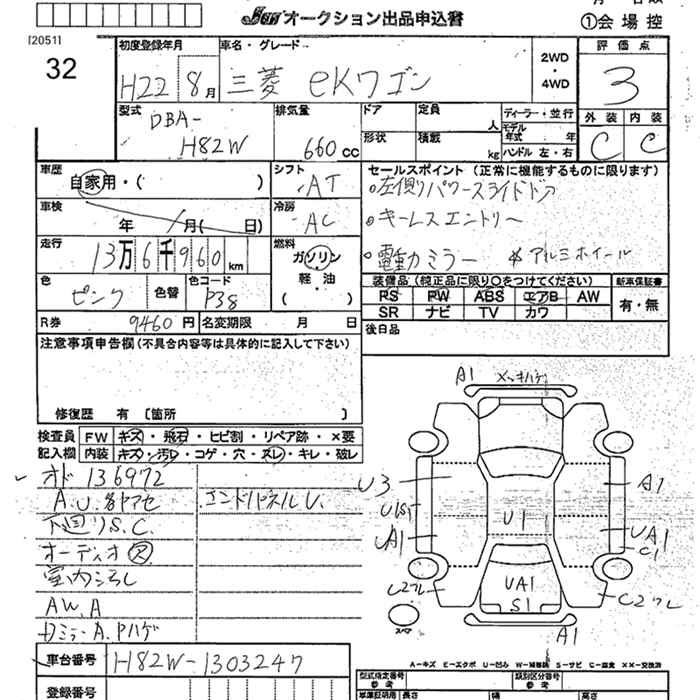 JU オークション出品申込書
①会場控
[20511
32
初度登録年月
H22 8月
車名・グレード
三菱 eKワゴン
2WD
・
4WD
評価点
3
型式
DBA-
H82W
排気量
660cc
ドア
定員
人
形状
積載
kg
ディーラー・並行
モデル年式 年
ハンドル 左・右
外装 内装
C C
車歴
自家用・( )
シフト
AT
セールスポイント (正常に機能するものに限ります)
・左側パワースライドドア
・キーレスエントリー
・電動ミラー ※アルミホイール
車検
年 月( 日)
冷房
AC
走行
13万6千960km
燃料
ガソリン
軽・油
( )
色
ピンク
色替
色コード
P38
装備品 (純正品に限り○をつけてください)
PS PW ABS エアB AW
SR ナビ TV カワ
新車保証書
有・無
R券 9460円
名変期限 月 日
後日品
注意事項申告欄(不具合内容等は具体的に記入して下さい)
修復歴 有 〔箇所 〕
検査員 FW キズ・飛石・ヒビ割・リペア跡・×要
記入欄 内装 キズ・汚レ・コゲ・穴・スレ・キレ・破レ
オド 136972
A.U.各ヤアセ エンドパネルU.
下回りS.C
オーディオ欠
室内ヨゴレ
AW.A
ドミラーA.Pハゲ
車台番号 H82W-1303247
登録番号
A1 メッキハゲ
U3
A1
U1S1
U1
UA1
UA1
C1
C2フレ
UA1
S1
C2フレ
A1
スペア
A-キズ E-エクボ U-凹み W-補修跡 S-サビ C-腐食 XX-交換済
型式指定番号
参考
類別区分番号
参考
車庫証明用
長さ
幅
高さ